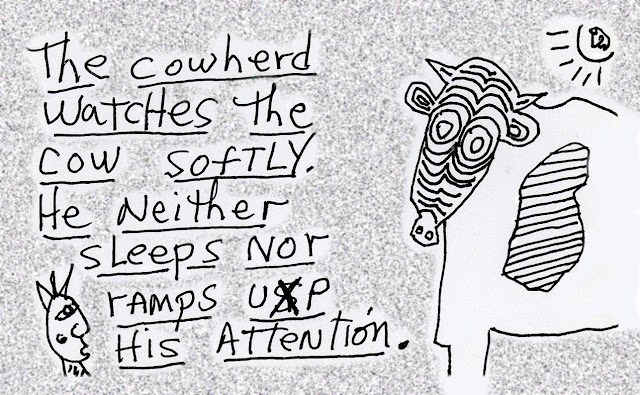 The cowherd
watches the
cow softly.
He Neither
sleeps Nor
ramps up
His Attention.